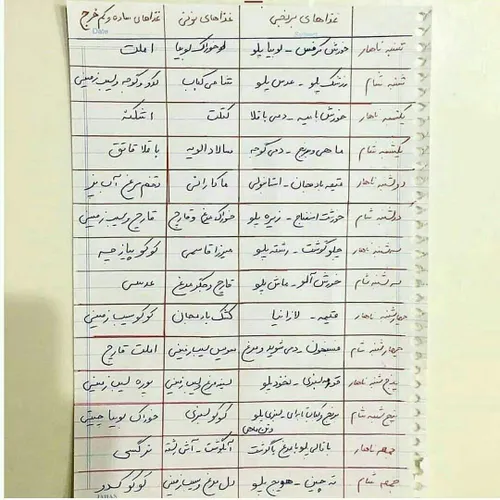 غذاهای برنجی غذاهای نونی غذاهای ساده و کم خرج
شنبه ناهار خورش کرفس - لوبیا پلو خوراک لوبیا املت
شنبه شام زرشک پلو - عدس پلو شامی کباب کوکو گوجه و سیب زمینی
یکشنبه ناهار خورش بامیه - دمی باقلا کتلت اشکنه
یکشنبه شام ماهی و مرغ - دمی گوجه سالاد الویه باقلا قاتق
دوشنبه ناهار قیمه بادمجان - استامبولی ماکارانی تخم مرغ آب پز
دوشنبه شام خورشت اسفناج - زیره پلو خوراک مرغ و قارچ قارچ و سیب زمینی
سه شنبه ناهار چلو گوشت - رشته پلو میرزا قاسمی کوکو پیازچه
سه شنبه شام خورش آلو - ماش پلو قارچ و جگر مرغ عدسی
چهارشنبه ناهار قیمه - لازانیا کشک بادمجان کوکو سیب زمینی
چهارشنبه شام دمی شوید و مرغ سوسیس سیب زمینی املت قارچ
پنج شنبه ناهار قورمه سبزی - نخود پلو سینه مرغ سیب زمینی پوره سیب زمینی
پنج شنبه شام سبزی پلو کوکو سبزی خوراک لوبیا چیتی
جمعه ناهار باقالی پلو با مرغ یا گوشت آبگوشت - آش رشته نرگسی
جمعه شام ته چین - هویج پلو دل مرغ و سیب زمینی کوکو کدو